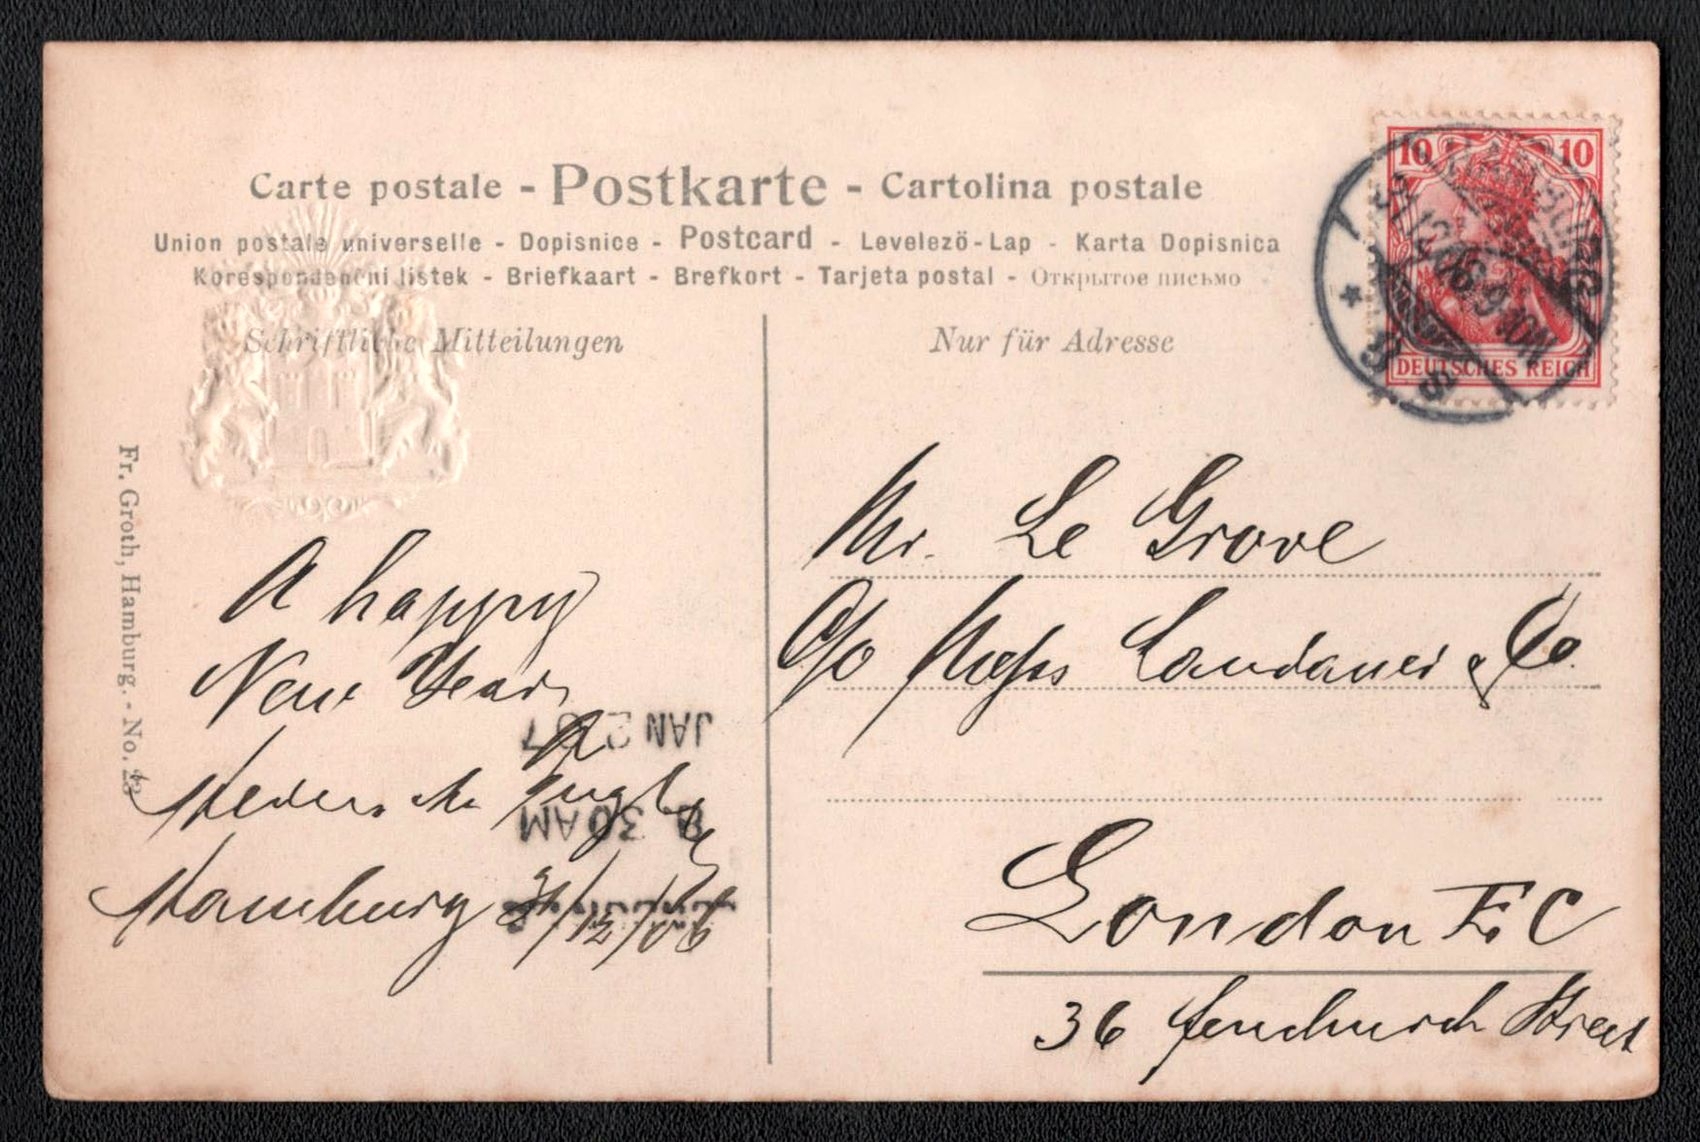 Carte postale - Postkarte - Cartolina postale
Union postale universelle - Dopisnice - Postcard - Levelezö-Lap - Karta Dopisnica
Korespondenčni listek - Briefkaart - Brefkort - Tarjeta postal - Открытое письмо
Schriftliche Mitteilungen
Nur für Adresse
10 10
DEUTSCHES REICH
HAMBURG
31.12.06.9-10N
* 9
Fr. Groth, Hamburg. - No. 23
A happy
New Year
JAN 2 07
30 AM
Hamburg 31/12/06
Mr. Le Grove
C/o Messs Landauer & Co.
London E.C
36 fenchurch Street